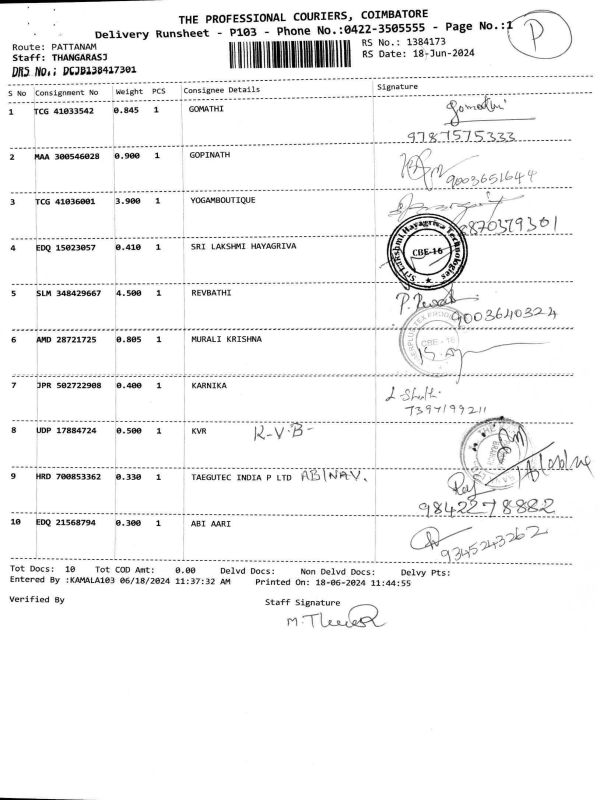 THE PROFESSIONAL COURIERS, COIMBATORE
Delivery Runsheet - P103 - Phone No.:0422-3505555 - Page No.:1
P
Route: PATTANAM
RS No.: 1384173
Staff: THANGARASJ
RS Date: 18-Jun-2024
DRS No.: DCJB138417301
S No Consignment No Weight PCS Consignee Details Signature
1 TCG 41033542 0.845 1 GOMATHI Gomathi
9787575333
2 MAA 300546028 0.900 1 GOPINATH
9003651644
3 TCG 41036001 3.900 1 YOGAMBOUTIQUE
8870379301
4 EDQ 15023057 0.410 1 SRI LAKSHMI HAYAGRIVA
Sri Lakshmi Hayagriva Technologies
CBE-16
5 SLM 348429667 4.500 1 REVBATHI
9003640324
6 AMD 28721725 0.805 1 MURALI KRISHNA
CBE - 16
7 JPR 502722908 0.400 1 KARNIKA
7397199211
8 UDP 17884724 0.500 1 KVR K-V-B-
9 HRD 700853362 0.330 1 TAEGUTEC INDIA P LTD ABINAV.
9842278882
10 EDQ 21568794 0.300 1 ABI AARI
9345243262
Tot Docs: 10 Tot COD Amt: 0.00 Delvd Docs: Non Delvd Docs: Delvy Pts:
Entered By :KAMALA103 06/18/2024 11:37:32 AM Printed On: 18-06-2024 11:44:55
Verified By
Staff Signature